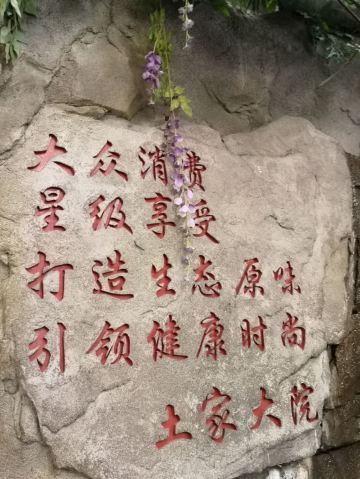 大众消费
星级享受
打造生态原味
引领健康时尚
土家大院